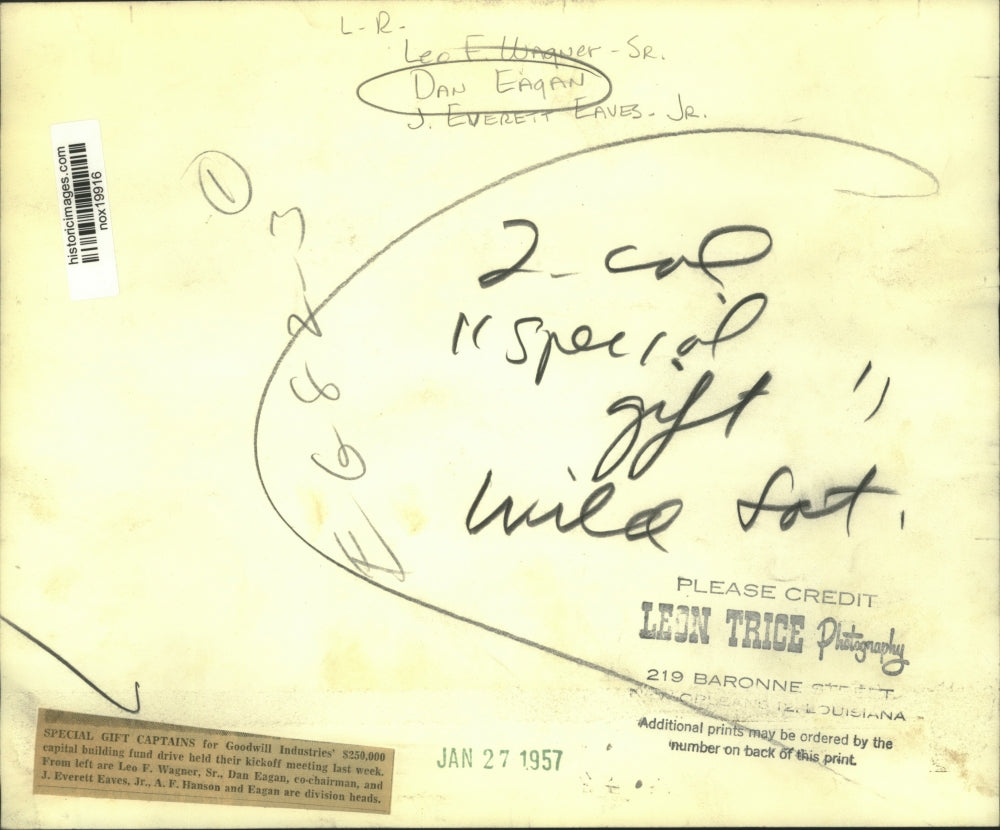 L-R-
Leo F. Wagner-Sr.
Dan Eagan
J. Everett Eaves-Jr.
historicimages.com
nox19916
1
E 6 8 2-3
2-col
"Special
gift"
Sat.
PLEASE CREDIT
LEON TRICE Photography
219 BARONNE STREET
NEW ORLEANS 12, LOUISIANA
Additional prints may be ordered by the
number on back of this print.
SPECIAL GIFT CAPTAINS for Goodwill Industries' $250,000
capital building fund drive held their kickoff meeting last week.
From left are Leo F. Wagner, Sr., Dan Eagan, co-chairman, and
J. Everett Eaves, Jr., A. F. Hanson and Eagan are division heads.
JAN 27 1957